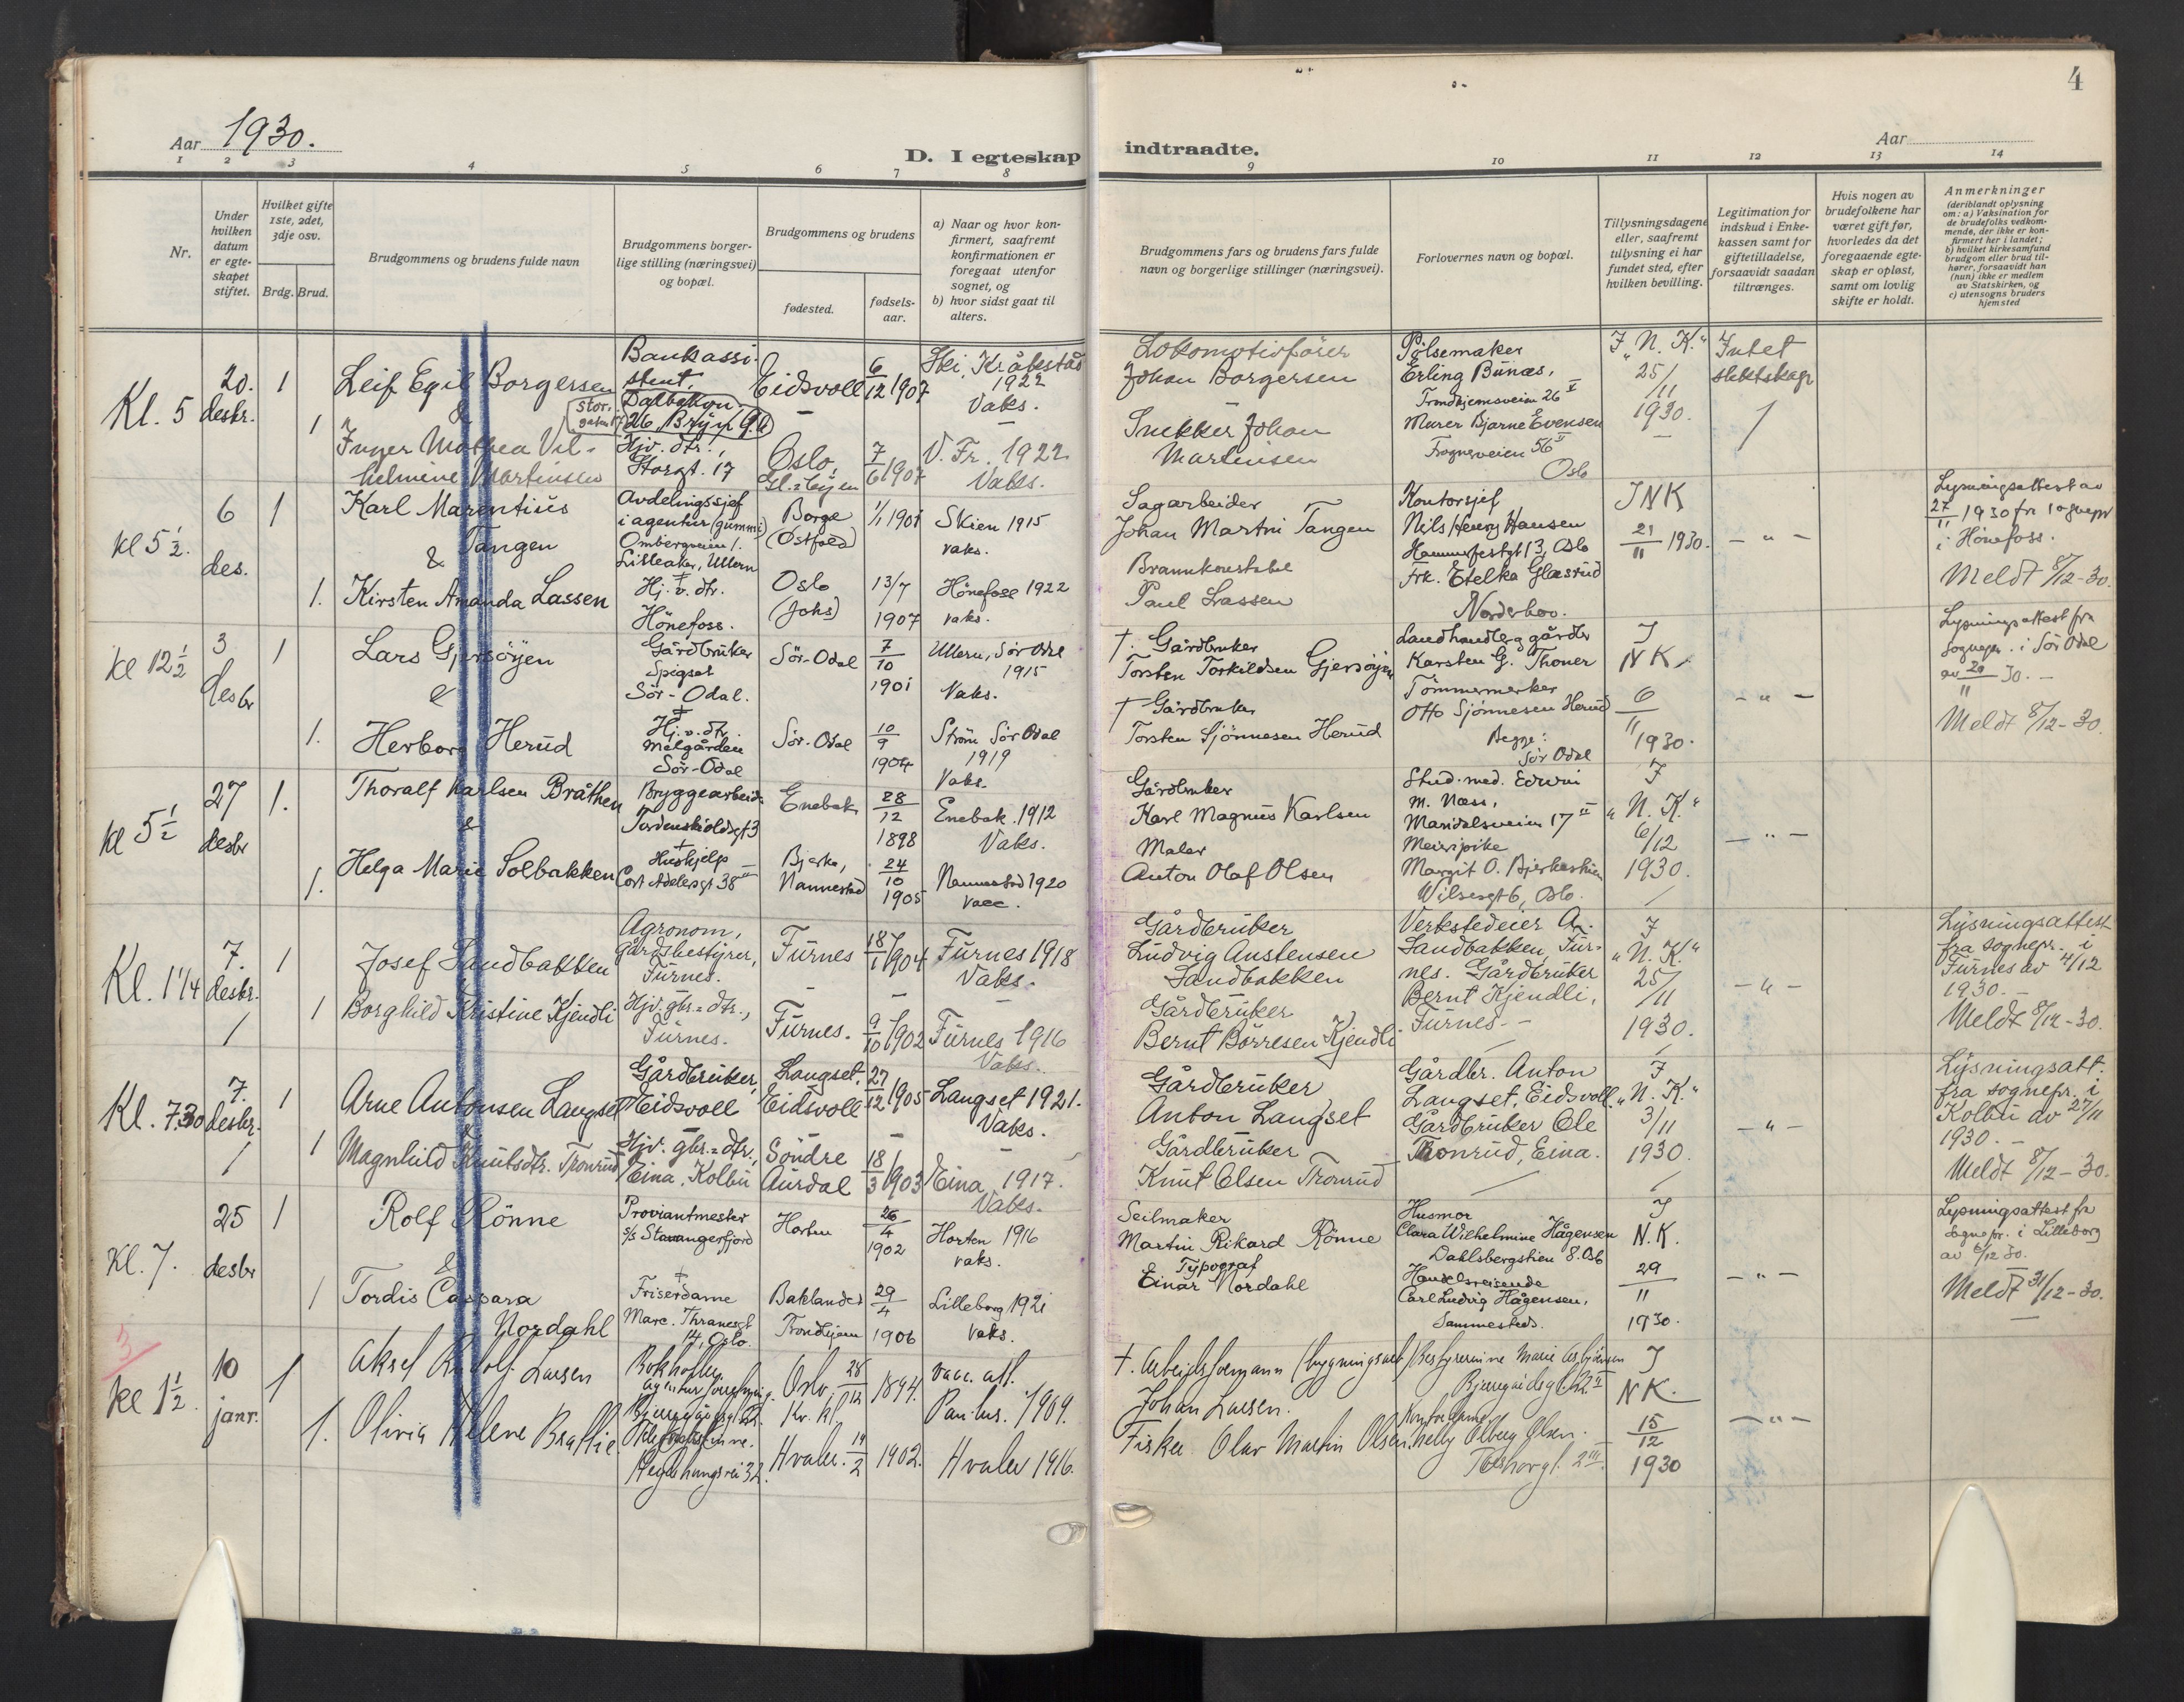 4
Aar 1930.
D. I egteskap indtraadte.
Aar
1 2 3 4 5 6 7 8 9 10 11 12 13 14
Nr.
Under hvilken datum er egte-skapet stiftet.
Hvilket gifte 1ste, 2det, 3dje osv.
Brdg. Brud.
Brudgommens og brudens fulde navn
Brudgommens borger-lige stilling (næringsvei) og bopæl.
Brudgommens og brudens
fødested.
fødsels-aar.
a) Naar og hvor kon-firmert, saafremt konfirmationen er foregaat utenfor sognet, og
b) hvor sidst gaat til alters.
Brudgommens fars og brudens fars fulde navn og borgerlige stillinger (næringsvei).
Forlovernes navn og bopæl.
Tillysningsdagene eller, saafremt tillysning ei har fundet sted, efter hvilken bevilling.
Legitimation for indskud i Enke-kassen samt for giftetilladelse, forsaavidt saadan tiltrænges.
Hvis nogen av brudefolkene har været gift før, hvorledes da det foregaaende egte-skap er opløst, samt om lovlig skifte er holdt.
Anmerkninger (deriblandt oplysning om: a) Vaksination for de brudefolks vedkom-mende, der ikke er kon-firmert her i landet; b) hvilket kirkesamfund brudgom eller brud til-hører, forsaavidt han (hun) ikke er medlem av Statskirken, og c) utensogns bruders hjemsted
Kl. 5
20. desbr.
1
Leif Egil Borgersen
&
Bankassi-
stent,
Dalbakkvn.
26, Bryn
Stor-
gaten 17
Eidsvoll
6/12 1907
Ski, Kråkestad
1922
Vaks.
Lokomotivfører
Johan Borgersen
Pölsemaker
Erling Bünæs,
Trondhjemsveien 26 V
I. "N. K."
25/11
1930.
Intet
slektskap
1
Inger Mathea Vil-
helmine Martinsen
Hjv. dtr.,
Storgt. 17
Oslo,
7/6 1907
V. Fr. 1922
Vaks.
Snekker Johan
Martinsen
Murer Bjarne Evensen
Trogneveien 56 II
Oslo
Kl 5 1/2.
6 des.
1
Karl Marentius
Tangen
&
Avdelingssjef
i agentur (gummi)
Ombergveien 1.
Lilleaker, Ullern
Borge
(Østfold)
1/1 1901
Skien 1915
vaks.
Sagarbeider
Johan Martin Tangen
Kontorsjef
Nils Henry Hansen
Hammerfestgt 13, Oslo
INK
21/11 1930.
- " -
Lysningsattest av
27/11 1930 fra sognepr
i Hönefoss.
Meldt 8/12-30.
1.
Kirsten Amanda Lassen
Hj. v. dtr.
Hönefoss.
Oslo
(Johs)
13/7
1907
Hönefoss 1922
vaks.
Brannkonstabel
Paul Lassen
Frk. Etelka Glæsrud
Norderhov.
Kl 12 1/2
3 desbr
1
Lars Gjersöyen
&
Gårdbruker
Spigset
Sör-Odal.
Sör-Odal
7/10
1901
Ullern, Sör Odal
1915
Vaks.
†. Gårdbruker
Torsten Torkildsen Gjersöyen
Landhandler og gårdbr
Karsten G. Thoner
I
NK.
6/11
1930.
- " -
Lysningsattest fra
sognepr. i Sör Odal
av 20/11 30. -
Meldt 8/12-30.
1.
Herborg Herud
Hj. v. dtr.
Melgården
Sör-Odal
Sör-Odal
10/9
1904
Ström Sör Odal
1919
Vaks.
† Gårdbruker
Torsten Sjönnesen Herud
Tömmermerker
Otto Sjönnesen Herud
Begge:
Sör Odal
Kl 5 1/2
27 desbr
1.
Thoralf Karlsen Bråthen
&
Bryggearbeider
Tordenskioldsgt 3
Enebak
28/12
1898
Enebak 1912
Vaks.
Gårdbruker
Karl Magnus Karlsen
Stud. med. Edwin
M. Næss,
Maridalsveien 17 II
I
"N. K."
6/12
1930.
- " -
1.
Helga Marie Solbakken
Hushjelp
Cort Adelersgt 38 III
Bjerke,
Nannestad
24/10
1905
Nannestad 1920
vacc.
Maler
Anton Olaf Olsen
Meieripike
Margit O. Bjerkestuen
Wilsesgt 6, Oslo.
Kl. 1 1/4
7. desbr.
1
Josef Sandbakken
Agronom,
gårdsbestyrer,
Fürnes.
Fürnes
18/1 1904
Fürnes 1918
Vaks.
Gårdbrüker
Lüdvig Austensen
Sandbakken
Verkstedeier A.
Sandbakken, Für-
nes. Gårdbrüker
Bernt Kjendli,
Fürnes. -
I
"N. K."
25/11
1930.
- " -
Lysningsattest
fra sognepr. i
Fürnes av 4/12
1930. -
Meldt 8/12-30.
1
Borghild Kristine Kjendli
Hjv. gbr.=dtr.,
Fürnes.
Fürnes.
9/10 1902
Fürnes 1916
Vaks.
Gårdbrüker
Bernt Börresen Kjendli
Kl. 7.30
7. desbr.
1
Arne Antonsen Langset
&
Gårdbrüker,
Eidsvoll
Langset,
Eidsvoll
27/12 1905
Langset 1921.
Vaks.
Gårdbrüker
Anton Langset
Gårdbr. Anton
Langset, Eidsvoll.
Gårdbrüker Ole
Tronrüd, Eina.
I
"N. K."
3/11
1930.
- " -
Lysningsatt.
fra sognepr. i
Kolbü av 27/11
1930. -
Meldt 8/12-30.
1
Magnhild Knütsdtr. Tronrüd
Hjv. gbr.=dtr.,
Eina, Kolbü
Söndre
Aürdal
18/3 1903
Eina, 1917.
Vaks.
Gårdbrüker
Knüt Olsen Tronrüd
Kl. 7.
25 desbr
1
Rolf Rönne
&
Proviantmester
s/s Stavangerfjord
Horten
26/4
1902
Horten 1916
vaks.
Seilmaker
Martin Rikard Rönne
Husmor
Clara Wilhelmine Hågensen
Dahlsbergstien 8. Oslo
I
N. K.
29/11
1930.
- " -
Lysningsattest fra
sognepr. i Lilleborg
av 6/12 30.
Meldt 31/12-30.
1
Tordis Caspara
Nordahl
Friserdame
Marc. Thranesgt
14, Oslo.
Baklandet
Trondhjem
29/4
1906
Lilleborg 1921
vaks.
Typograf
Einar Nordahl
Handelsreisende
Carl Ludvig Hågensen,
Sammesteds.
3
Kl 1 1/2.
10 janr.
1
Aksel Rudolf Larsen
Bokholder
Bjerregårdsgt. 22.
Oslo,
28/12 1894.
vacc. att.
Paulus. 1909.
†. Arbeidsformann (bygningsarb)
Johan Larsen.
Bestyrerinne Marie Asbjörnsen
Bjerregårdsgt. 22 II
I
NK.
15/12
1930
- " -
1.
Olivia Helene Brattlie
Hvaler.
19/2 1902.
Hvaler 1916.
Fisker Olav Martin Olsen.
Kontordame
Nelly Olberg Olsen.